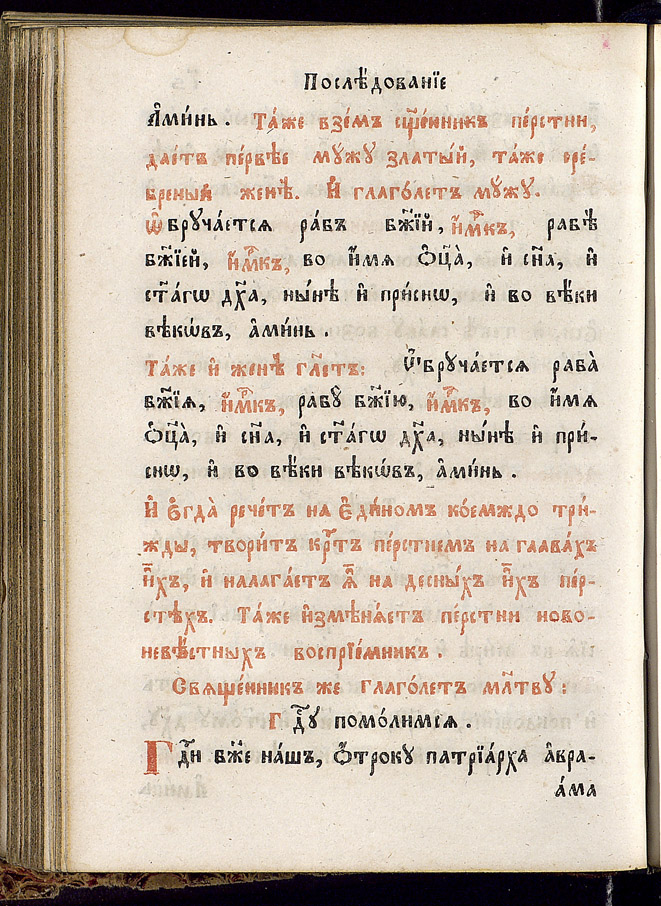 Послѣ́дованїе
А҆ми́нь. Та́же взе́мъ сщ҃е́нникъ пе́рстни,
дае́тъ пе́рвѣе мꙋ́жꙋ златы́й, та́же сре́-
бреный женѣ̀. И҆ глаго́летъ мꙋ́жꙋ.
Ѡ҆брꙋча́ется ра́бъ бж҃їй, и҆́м҃къ, рабѣ̀
бж҃їей, и҆́м҃къ, во и҆́мя ѻ҆ц҃а̀, и҆ сн҃а, и҆
ст҃а́гѡ дх҃а, ны́нѣ и҆ при́снѡ, и҆ во вѣ́ки
вѣкѡ́въ, а҆ми́нь.
Та́же и҆ женѣ̀ гл҃етъ: Ѡ҆брꙋча́ется раба̀
бж҃їя, и҆́м҃къ, рабꙋ̀ бж҃їю, и҆́м҃къ, во и҆́мя
ѻ҆ц҃а̀, и҆ сн҃а, и҆ ст҃а́гѡ дх҃а, ны́нѣ и҆ при́-
снѡ, и҆ во вѣ́ки вѣкѡ́въ, а҆ми́нь.
И҆ є҆гда̀ рече́тъ на є҆ди́номъ ко́емждо три́-
жды, твори́тъ крⷭ҇тъ пе́рстнемъ на глава́хъ
и҆́хъ, и҆ налага́етъ ѧ҆̀ на десны́хъ и҆́хъ пер-
стѣ́хъ. Та́же и҆змѣнѧ́етъ пе́рстни ново-
невѣ́стныхъ воспрїе́мникъ.
Свяще́нникъ же глаго́летъ мл҃твꙋ:
Гдⷭ҇ꙋ помо́лимся.
Гдⷭ҇и бж҃е на́шъ, ѻ҆́трокꙋ патрїа́рха а҆вра-
а́ма